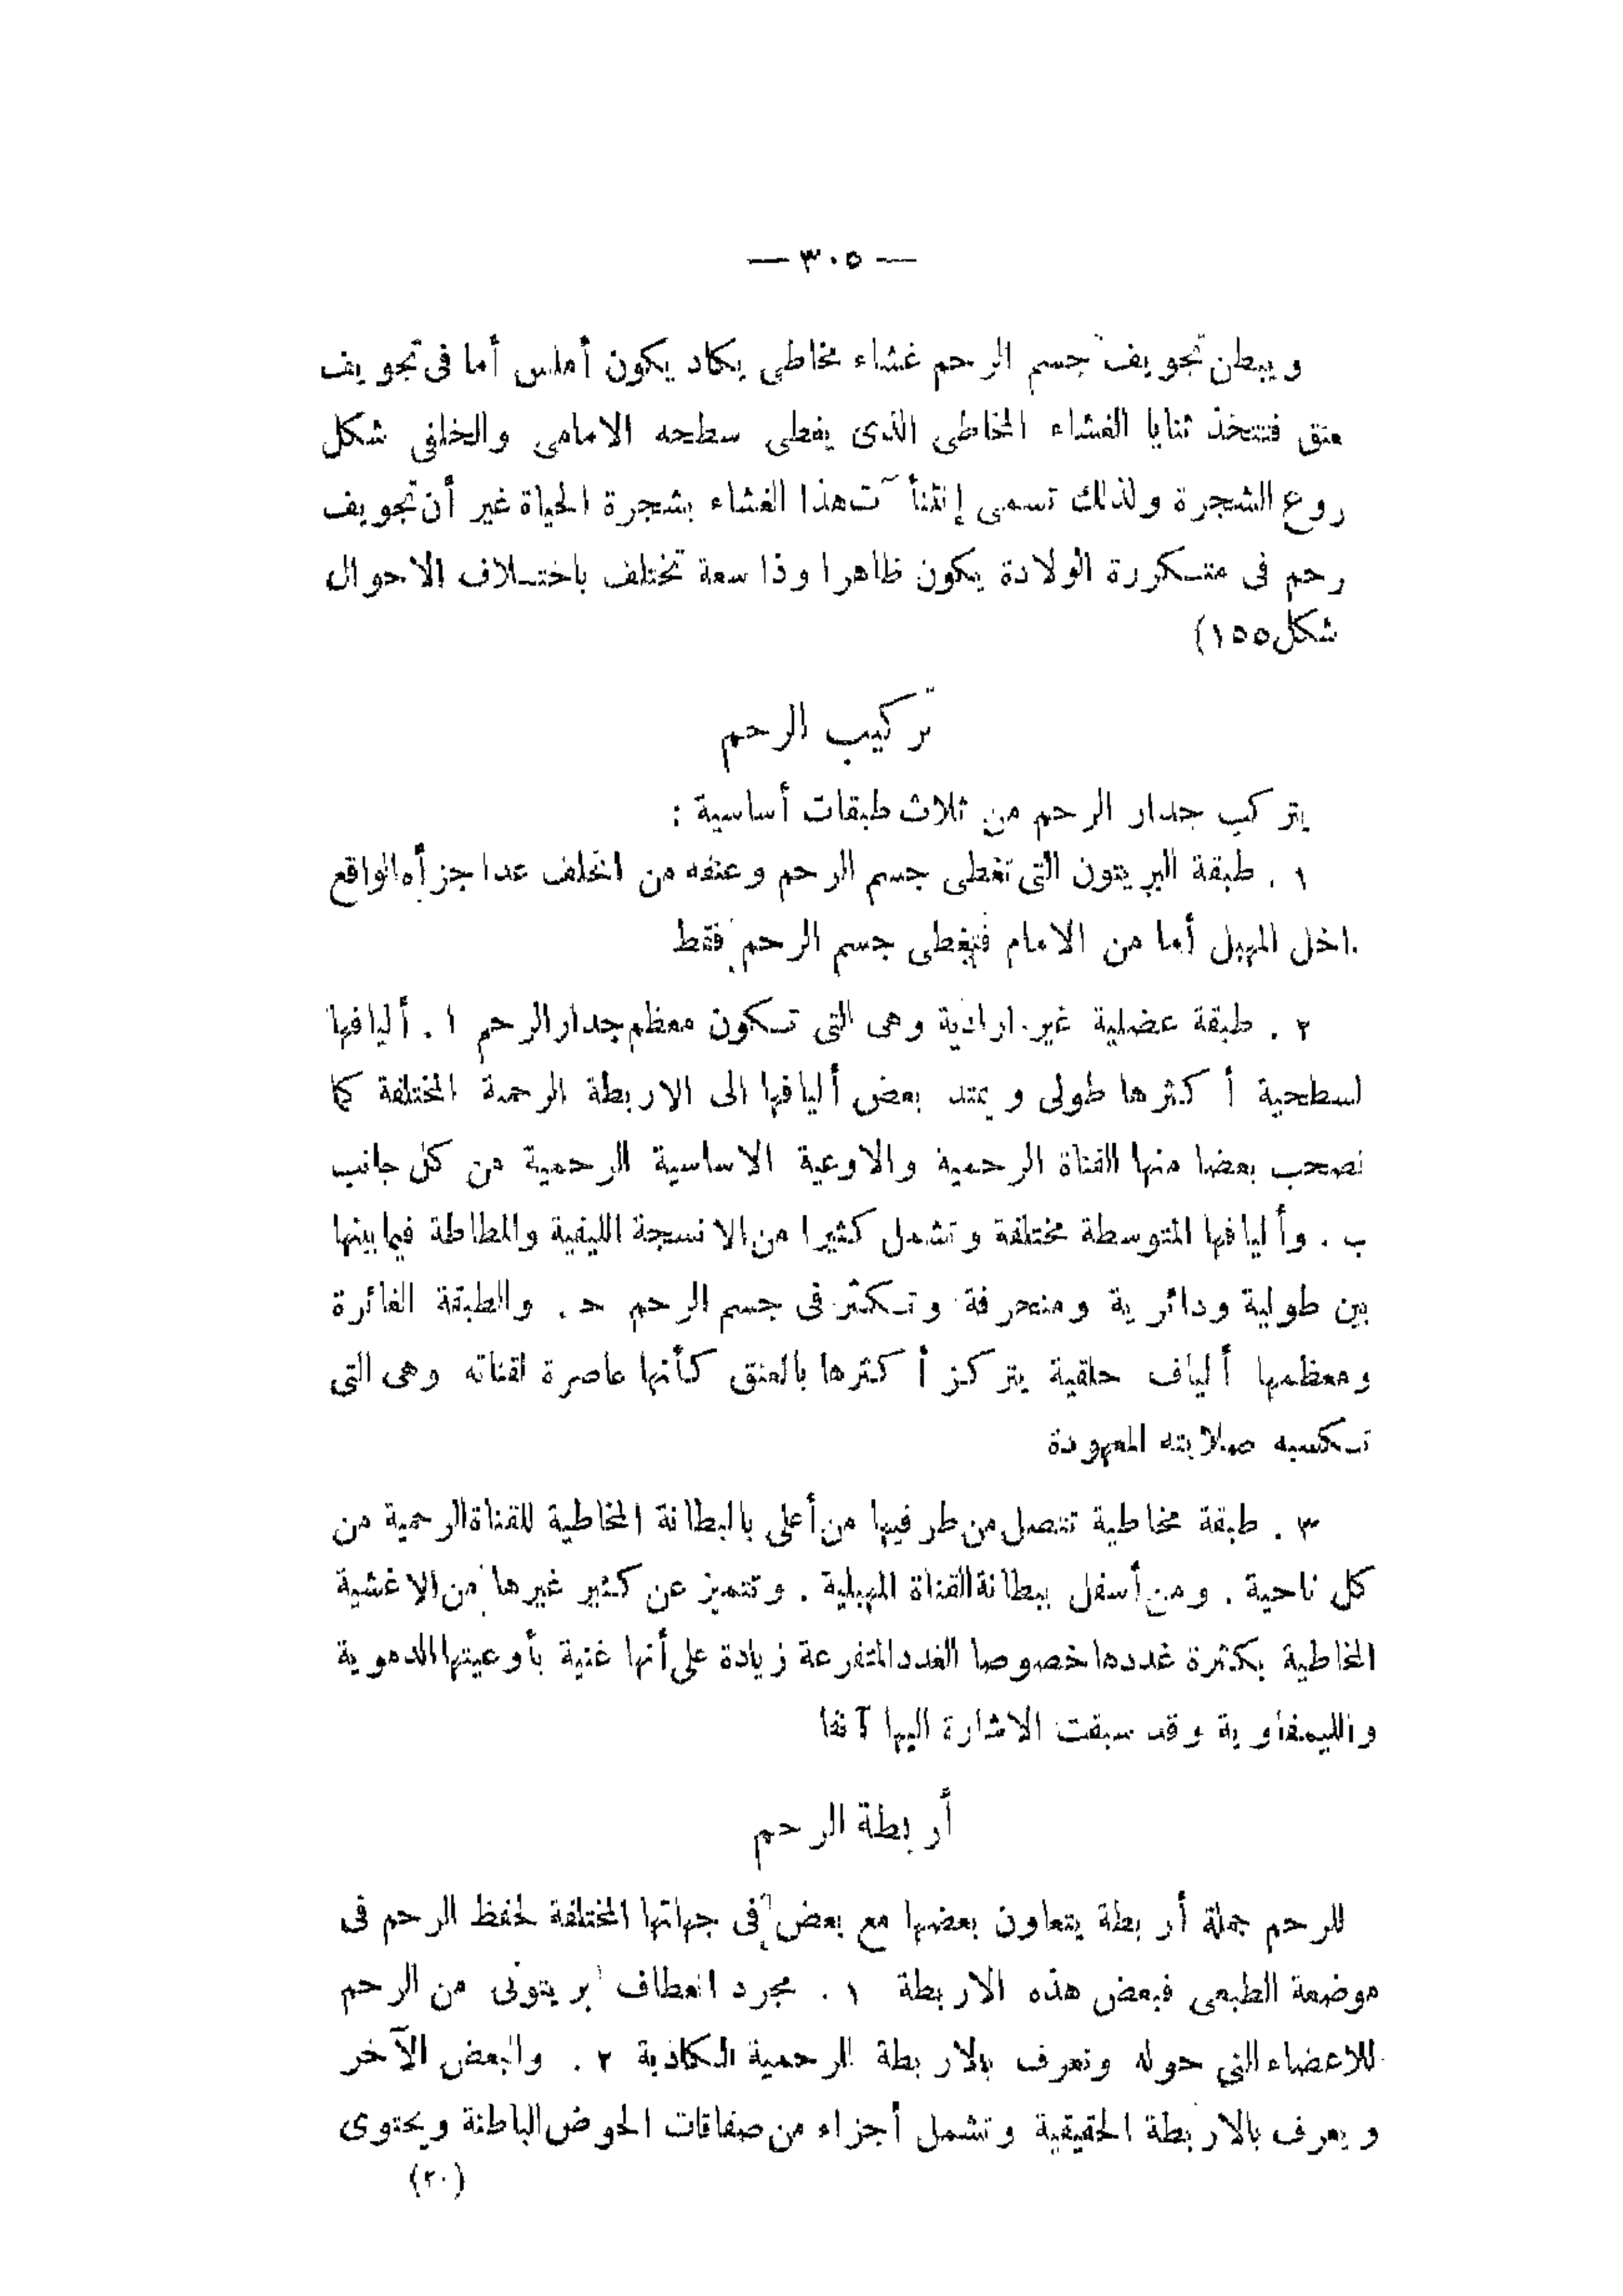 — ٣٠٥ —
ويبطن تجويف جسم الرحم غشاء مخاطى يكاد يكون أملس أما فى تجويف
عنق فتتخذ ثنايا الغشاء المخاطى الذى يغطى سطحه الامامى والخلفى شكل
روع الشجرة ولذلك تسمى إنثناآت هذا الغشاء بشجرة الحياة غير أن تجويف
رحم فى متكررة الولادة يكون ظاهرا وذا سعة تختلف باختلاف الاحوال
شكل ١٥٥)
تركيب الرحم
يتركب جدار الرحم من ثلاث طبقات أساسية :
١ . طبقة البريتون التى تغطى جسم الرحم وعنقه من الخلف عدا جزأه الواقع
اخل المهبل أما من الامام فتغطى جسم الرحم فقط
٢ . طبقة عضلية غير ارادية وهى التى تكون معظم جدار الرحم ا . أليافها
لسطحية أكثرها طولى ويمتد بعض أليافها الى الاربطة الرحمية المختلفة كما
تصحب بعضا منها القناة الرحمية والاوعية الاساسية الرحمية من كل جانب
ب . وأليافها المتوسطة مختلفة وتشمل كثيرا من الانسجة الليفية والمطاطة فيما بينها
بين طولية ودائرية ومنحرفة وتكثر فى جسم الرحم ح . والطبقة الغائرة
ومعظمها ألياف حلقية يتركز أكثرها بالعنق كأنها عاصرة لقناته وهى التى
تكسبه صلابته المعهودة
٣ . طبقة مخاطية تتصل من طرفيها من أعلى بالبطانة المخاطية للقناة الرحمية من
كل ناحية . ومن أسفل ببطانة القناة المهبلية . وتتميز عن كثير غيرها من الاغشية
المخاطية بكثرة غددها خصوصا الغدد المتفرعة زيادة على أنها غنية بأوعيتها الدموية
والليمفاوية وقد سبقت الاشارة اليها آنفا
أربطة الرحم
للرحم جملة أربطة يتعاون بعضها مع بعض فى جهاتها المختلفة لحفظ الرحم فى
موضعة الطبعى فبعض هذه الاربطة ١ . مجرد انعطاف بريتونى من الرحم
للاعضاء التى حوله وتعرف بالاربطة الرحمية الكاذبة ٢ . والبعض الآخر
ويعرف بالاربطة الحقيقية وتشمل أجزاء من صفاقات الحوض الباطنة ويحتوى
(٢٠)